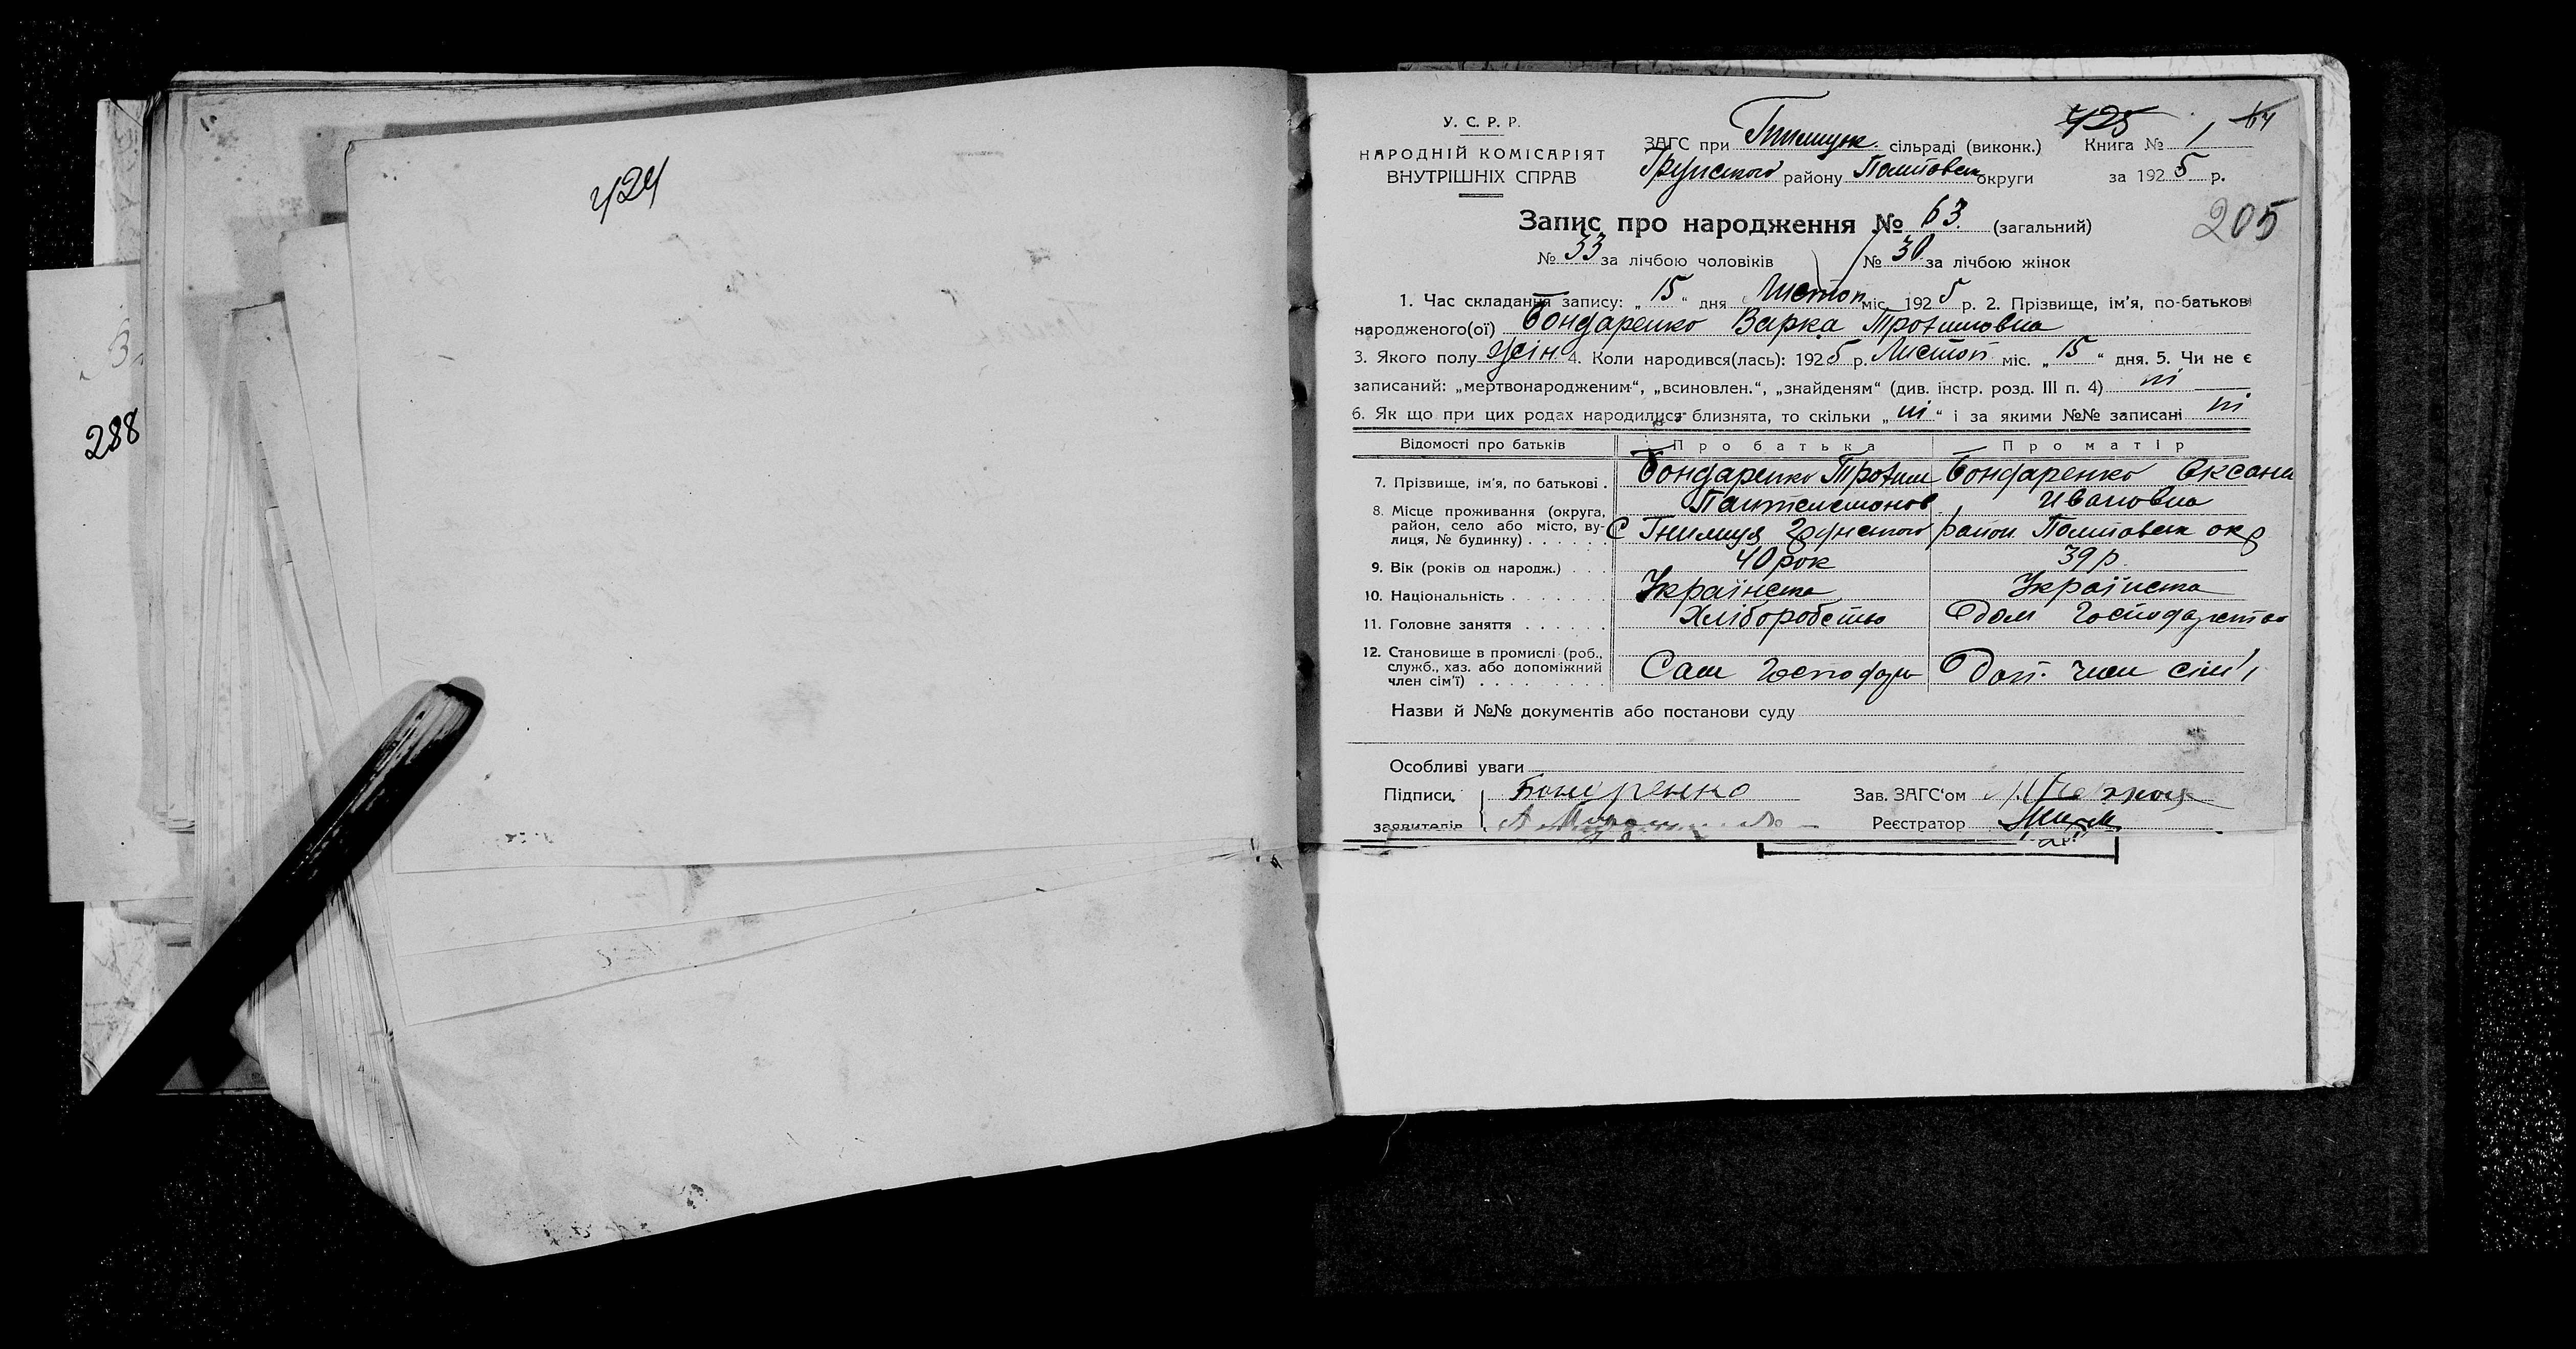 424
288
425
64
У. С. Р. Р.
НАРОДНІЙ КОМІСАРІЯТ
ВНУТРІШНІХ СПРАВ
ЗАГС при Гнилицьк. сільраді (виконк.) Книга № 1
Грунського району Полтовськ округи за 1925 р.
205
Запис про народження № 63. (загальний)
№ 33 за лічбою чоловіків № 30 за лічбою жінок
1. Час складання запису: „ 15 “ дня Листоп міс. 1925 р. 2. Прізвище, ім’я, по-батькові
народженого(ої) Бондаренко Варка Трохимовна
3. Якого полу жін 4. Коли народився(лась): 1925 р. Листоп міс. „ 15 “ дня. 5. Чи не є
записаний: „мертвонародженим“, „всиновлен.“, „знайденям“ (див. інстр. розд. III п. 4) ні
6. Як що при цих родах народилися близнята, то скільки „ ні “ і за якими №№ записані ні
Відомості про батьків Про батька Про матір
7. Прізвище, ім’я, по батькові . Бондаренко Трохим Бондаренко Оксана
Пантелемонов Ивановна
8. Місце проживання (округа,
район, село або місто, ву-
лиця, № будинку) . . . . . С Гнилиця Грунського район Полтовськ окр
9. Вік (років од народж.) . . . 40 рок 39 р.
10. Національність . . . . . . . Українська Українська
11. Головне заняття . . . . . . Хліборобство Дом Господарство
12. Становище в промислі (роб.,
служб., хаз. або допоміжний
член сім’ї) . . . . . . . . . Сам Господар Доп. член сім’ї
Назви й №№ документів або постанови суду
Особливі уваги
Підписи Бондренко Зав. ЗАГС‘ом
заявителів Реєстратор